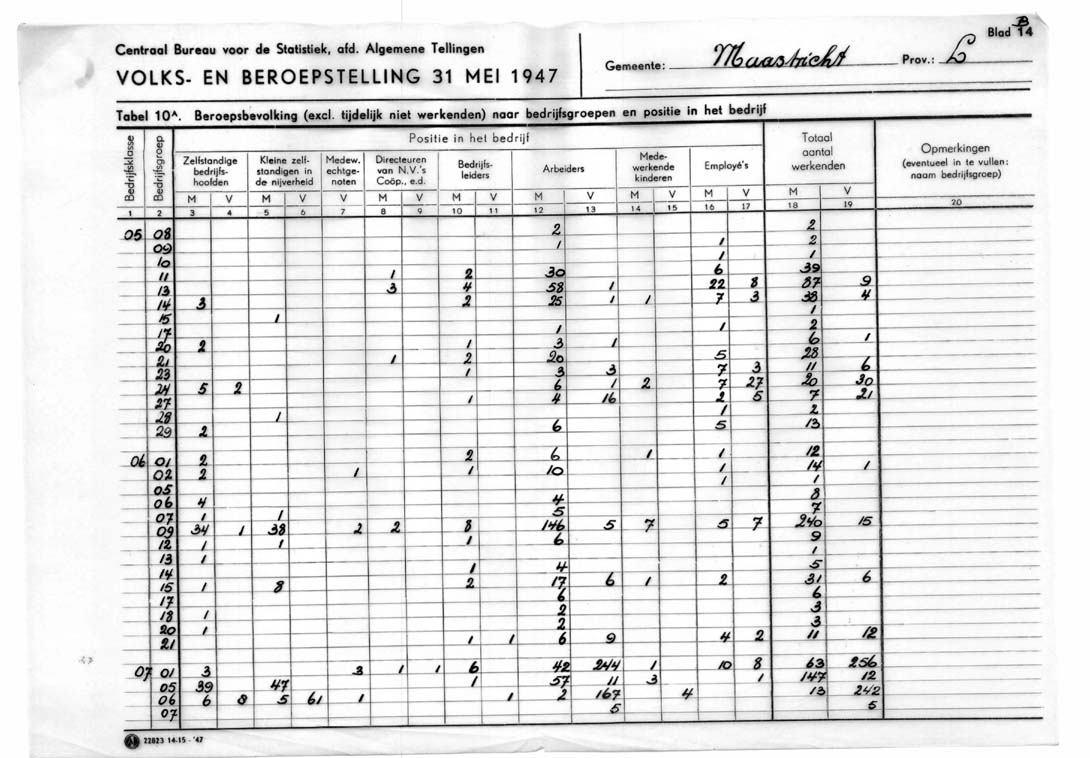 Blad B 14
Centraal Bureau voor de Statistiek, afd. Algemene Tellingen
VOLKS- EN BEROEPSTELLING 31 MEI 1947
Gemeente: Maastricht Prov.: L
Tabel 10A. Beroepsbevolking (excl. tijdelijk niet werkenden) naar bedrijfsgroepen en positie in het bedrijf
Bedrijfsklasse Bedrijfsgroep Positie in het bedrijf Totaal aantal werkenden Opmerkingen (eventueel in te vullen: naam bedrijfsgroep)
Zelfstandige bedrijfshoofden Kleine zelfstandigen in de nijverheid Medew. echtgenoten Directeuren van N.V.'s Coöp., e.d. Bedrijfsleiders Arbeiders Medewerkende kinderen Employé's
M V M V V M V M V M V M V M V M V
1 2 3 4 5 6 7 8 9 10 11 12 13 14 15 16 17 18 19 20
05 08 2 2
09 1 1 2
10 1 1
11 1 2 30 6 39
13 3 4 58 1 22 8 87 9
14 3 2 25 1 1 7 3 38 4
15 1 1
17 1 1 2
20 2 1 3 1 6 1
21 1 2 20 5 28
23 1 3 3 7 3 11 6
24 5 2 6 1 2 7 27 20 30
27 1 4 16 2 5 7 21
28 1 1 2
29 2 6 5 13
06 01 2 2 6 1 1 12
02 2 1 1 10 1 14 1
05 1 1
06 4 4 8
07 1 1 5 7
09 34 1 38 2 2 8 146 5 7 5 7 240 15
12 1 1 1 6 9
13 1 1
14 1 4 5
15 1 8 2 17 6 1 2 31 6
17 6 6
18 1 2 3
20 1 2 3
21 1 1 6 9 4 2 11 12
07 01 3 3 1 1 6 42 244 1 10 8 63 256
05 39 47 1 57 11 3 1 147 12
06 6 8 5 61 1 1 2 167 4 13 242
07 5 5
22823 14-15 - '47